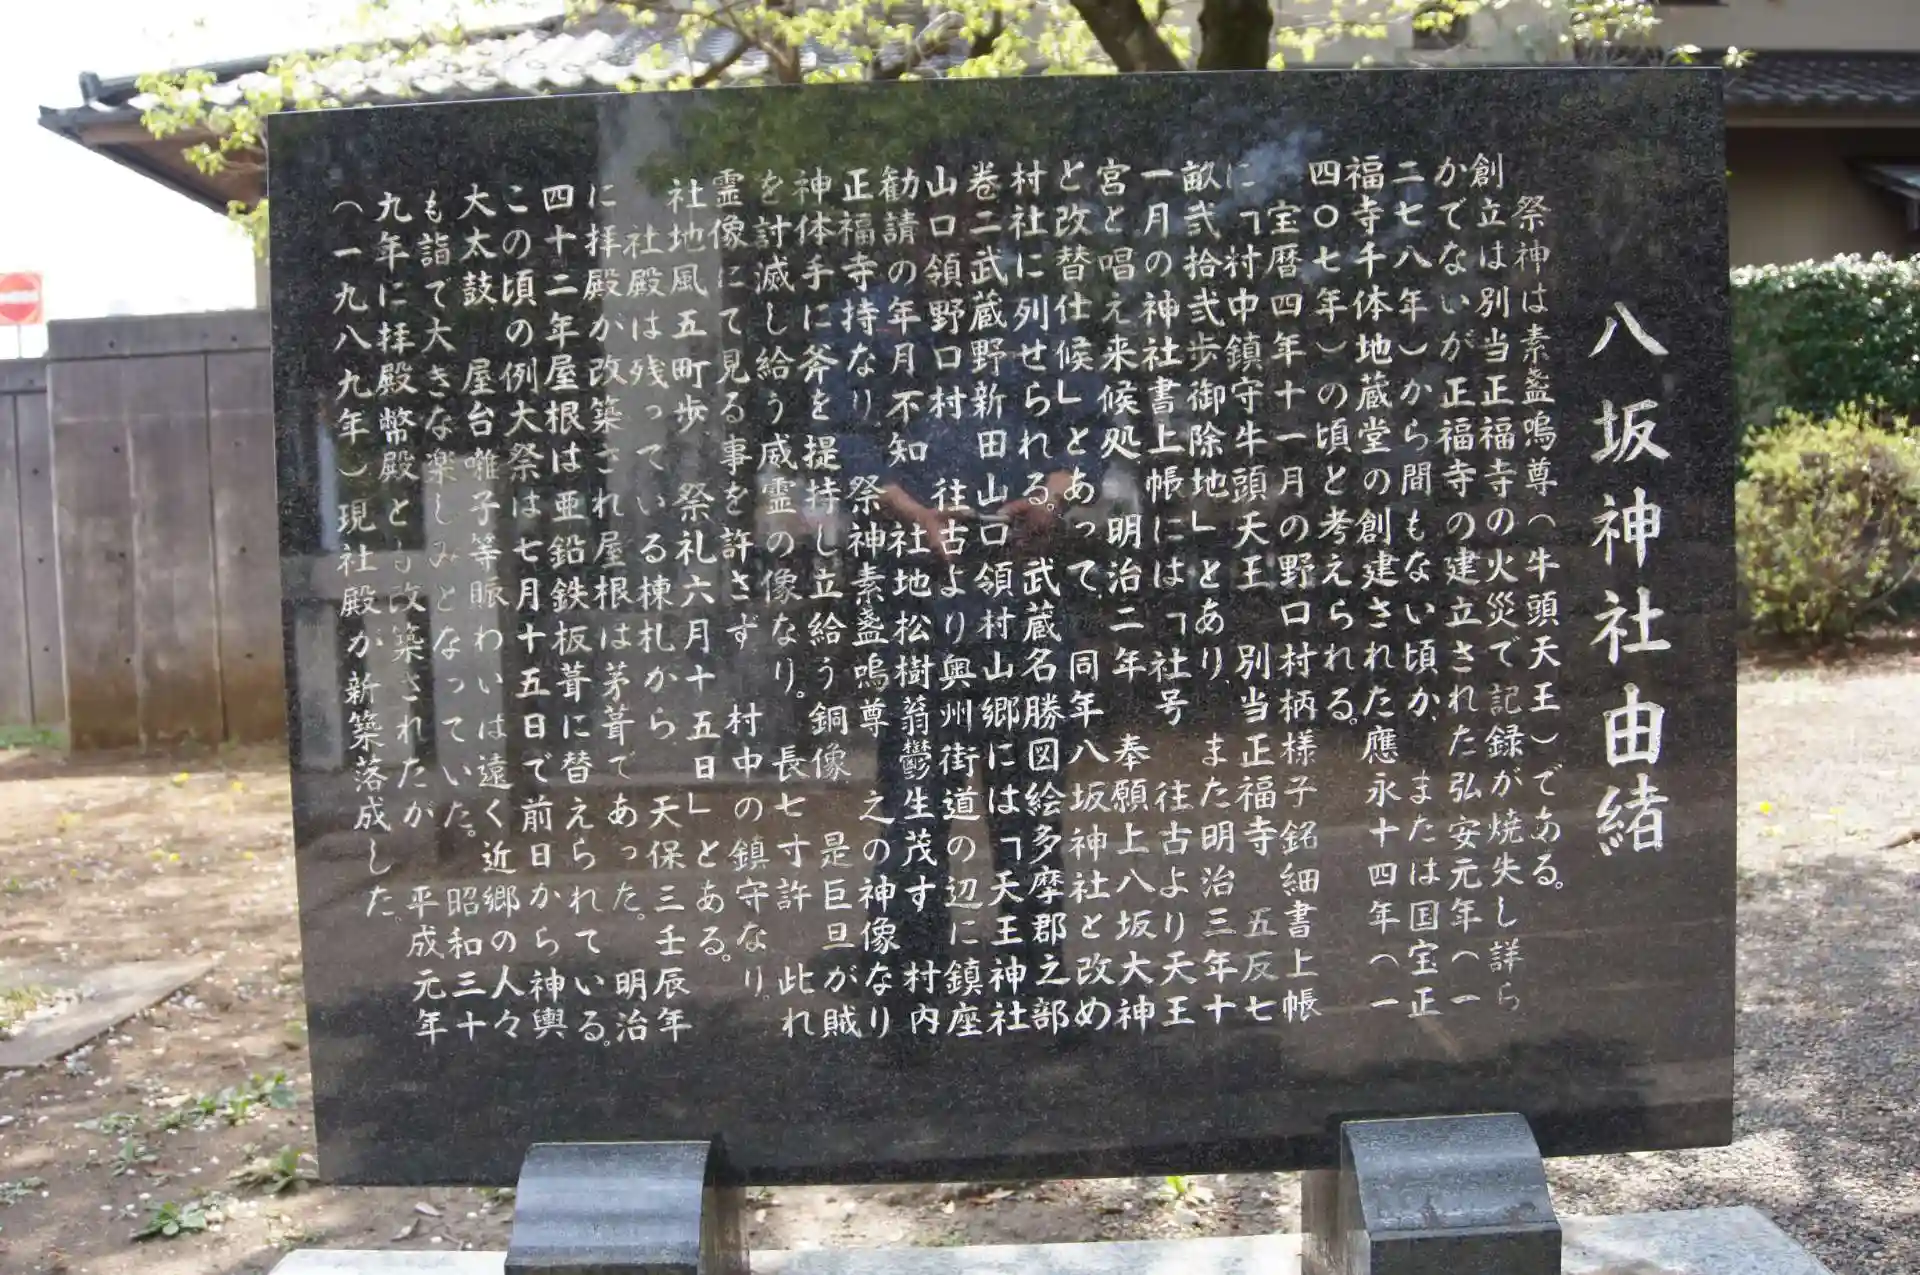 八坂神社由緒
祭神は素盞嗚尊（牛頭天王）である。
創立は別当正福寺の火災で記録が焼失し詳ら
かでないが正福寺の建立された弘安元年（一
二七八年）から間もない頃か、または国宝正
福寺千体地蔵堂の創建された應永十四年（一
四〇七年）の頃と考えられる。
宝暦四年十一月の野口村柄様子銘細書上帳
に「村中鎮守牛頭天王　別当正福寺　五反七
畝弐拾弐歩御除地」とあり、また明治三年十
一月の神社書上帳には「社号　往古より天王
宮と唱え来候処　明治二年　奉願上八坂大神
と改替仕候」とあって、同年八坂神社と改め
村社に列せられる。武蔵名勝図絵多摩郡之部
巻二武蔵野新田山口領村山郷には「天王神社
山口領野口村　往古より奥州街道の辺に鎮座
勧請の年月不知　社地松樹蓊鬱生茂す　村内
正福寺持なり、祭神素盞嗚尊　之の神像なり
神体手に斧を提持し立給う銅像　是巨旦が賊
を討滅し給う威霊の像なり。長七寸許　此れ
霊像にて見る事を許さず　村中の鎮守なり。
社地風五町歩、祭礼六月十五日」とある。
社殿は残っている棟札から　天保三壬辰年
に拝殿が改築され屋根は茅葺であった。明治
四十二年屋根は亜鉛鉄板葺に替えられている。
この頃の例大祭は七月十五日で前日から神輿
大太鼓、屋台囃子等賑わいは遠く近郷の人々
も詣で大きな楽しみとなっていた。昭和三十
九年に拝殿幣殿とも改築されたが　平成元年
（一九八九年）現社殿が新築落成した。